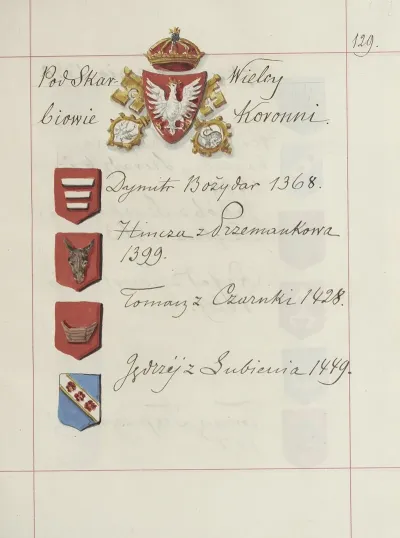 129.
Pod Skar- Wielcy
biowie Koronni.
Dymitr Bożydar 1368.
Hincza z Przemankowa
1399.
Tomasz z Czarnki 1428.
Jędrzéj z Lubienia 1449.